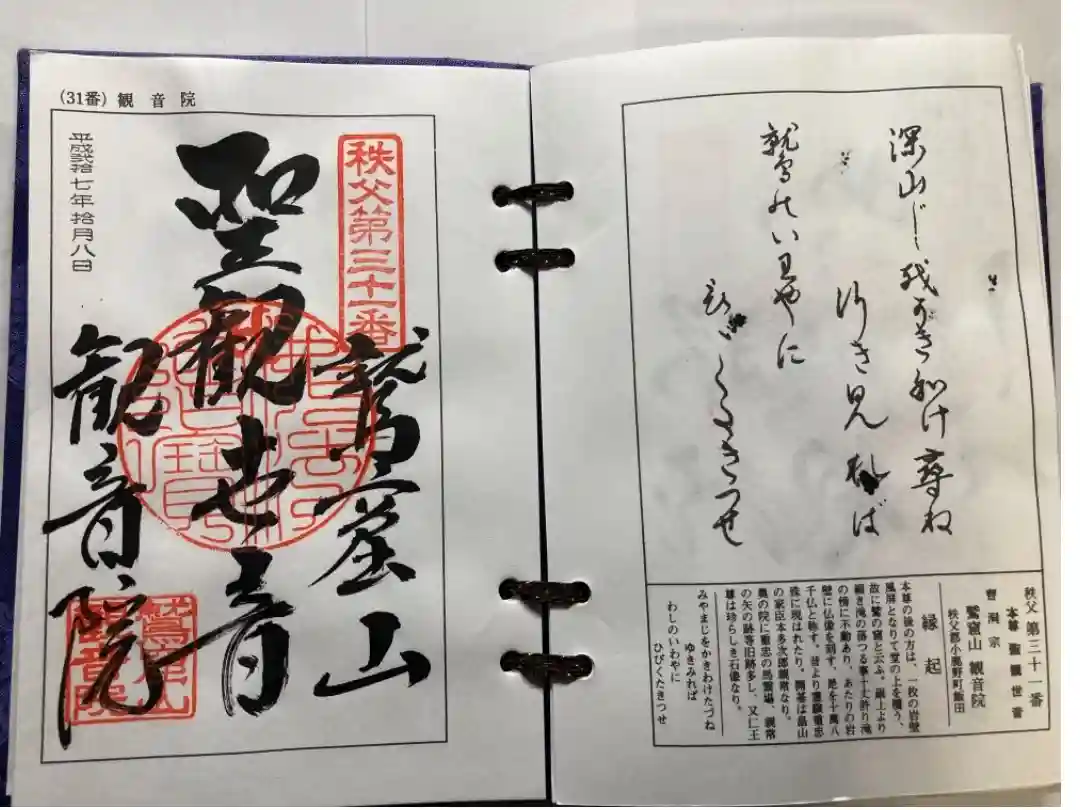 (31番) 観音院
秩父第三十一番
鷲窟山
聖観世音
観音院
平成弐拾七年拾月八日
深山じ越かき和け尋ね
行き見れば
鷲乃いわやに
ひゞくたきつせ
秩父第三十一番
本尊 聖観世音
曹洞宗
鷲窟山 観音院
秩父郡小鹿野町飯田
縁起
本尊の後の方は、一枚の岩壁
風屏となりて堂の上を覆う、
故に鷲の窟と云ふ。巌上より
細き滝の落つる事十丈許り滝
の傍に不動あり、あたりの岩
壁に仏像を刻す、是を十萬八
千仏と称す。昔より霊験重忠
殊に現はれたり。開基は畠山
の家臣本多次郎親常なり。
奥の院に重忠の馬蹄場、親常
の矢の跡等旧跡多し、又仁王
尊は珍らしき石像なり。
みやまじをかきわけたづね
ゆきみれば
わしのいわやに
ひびくたきつせ